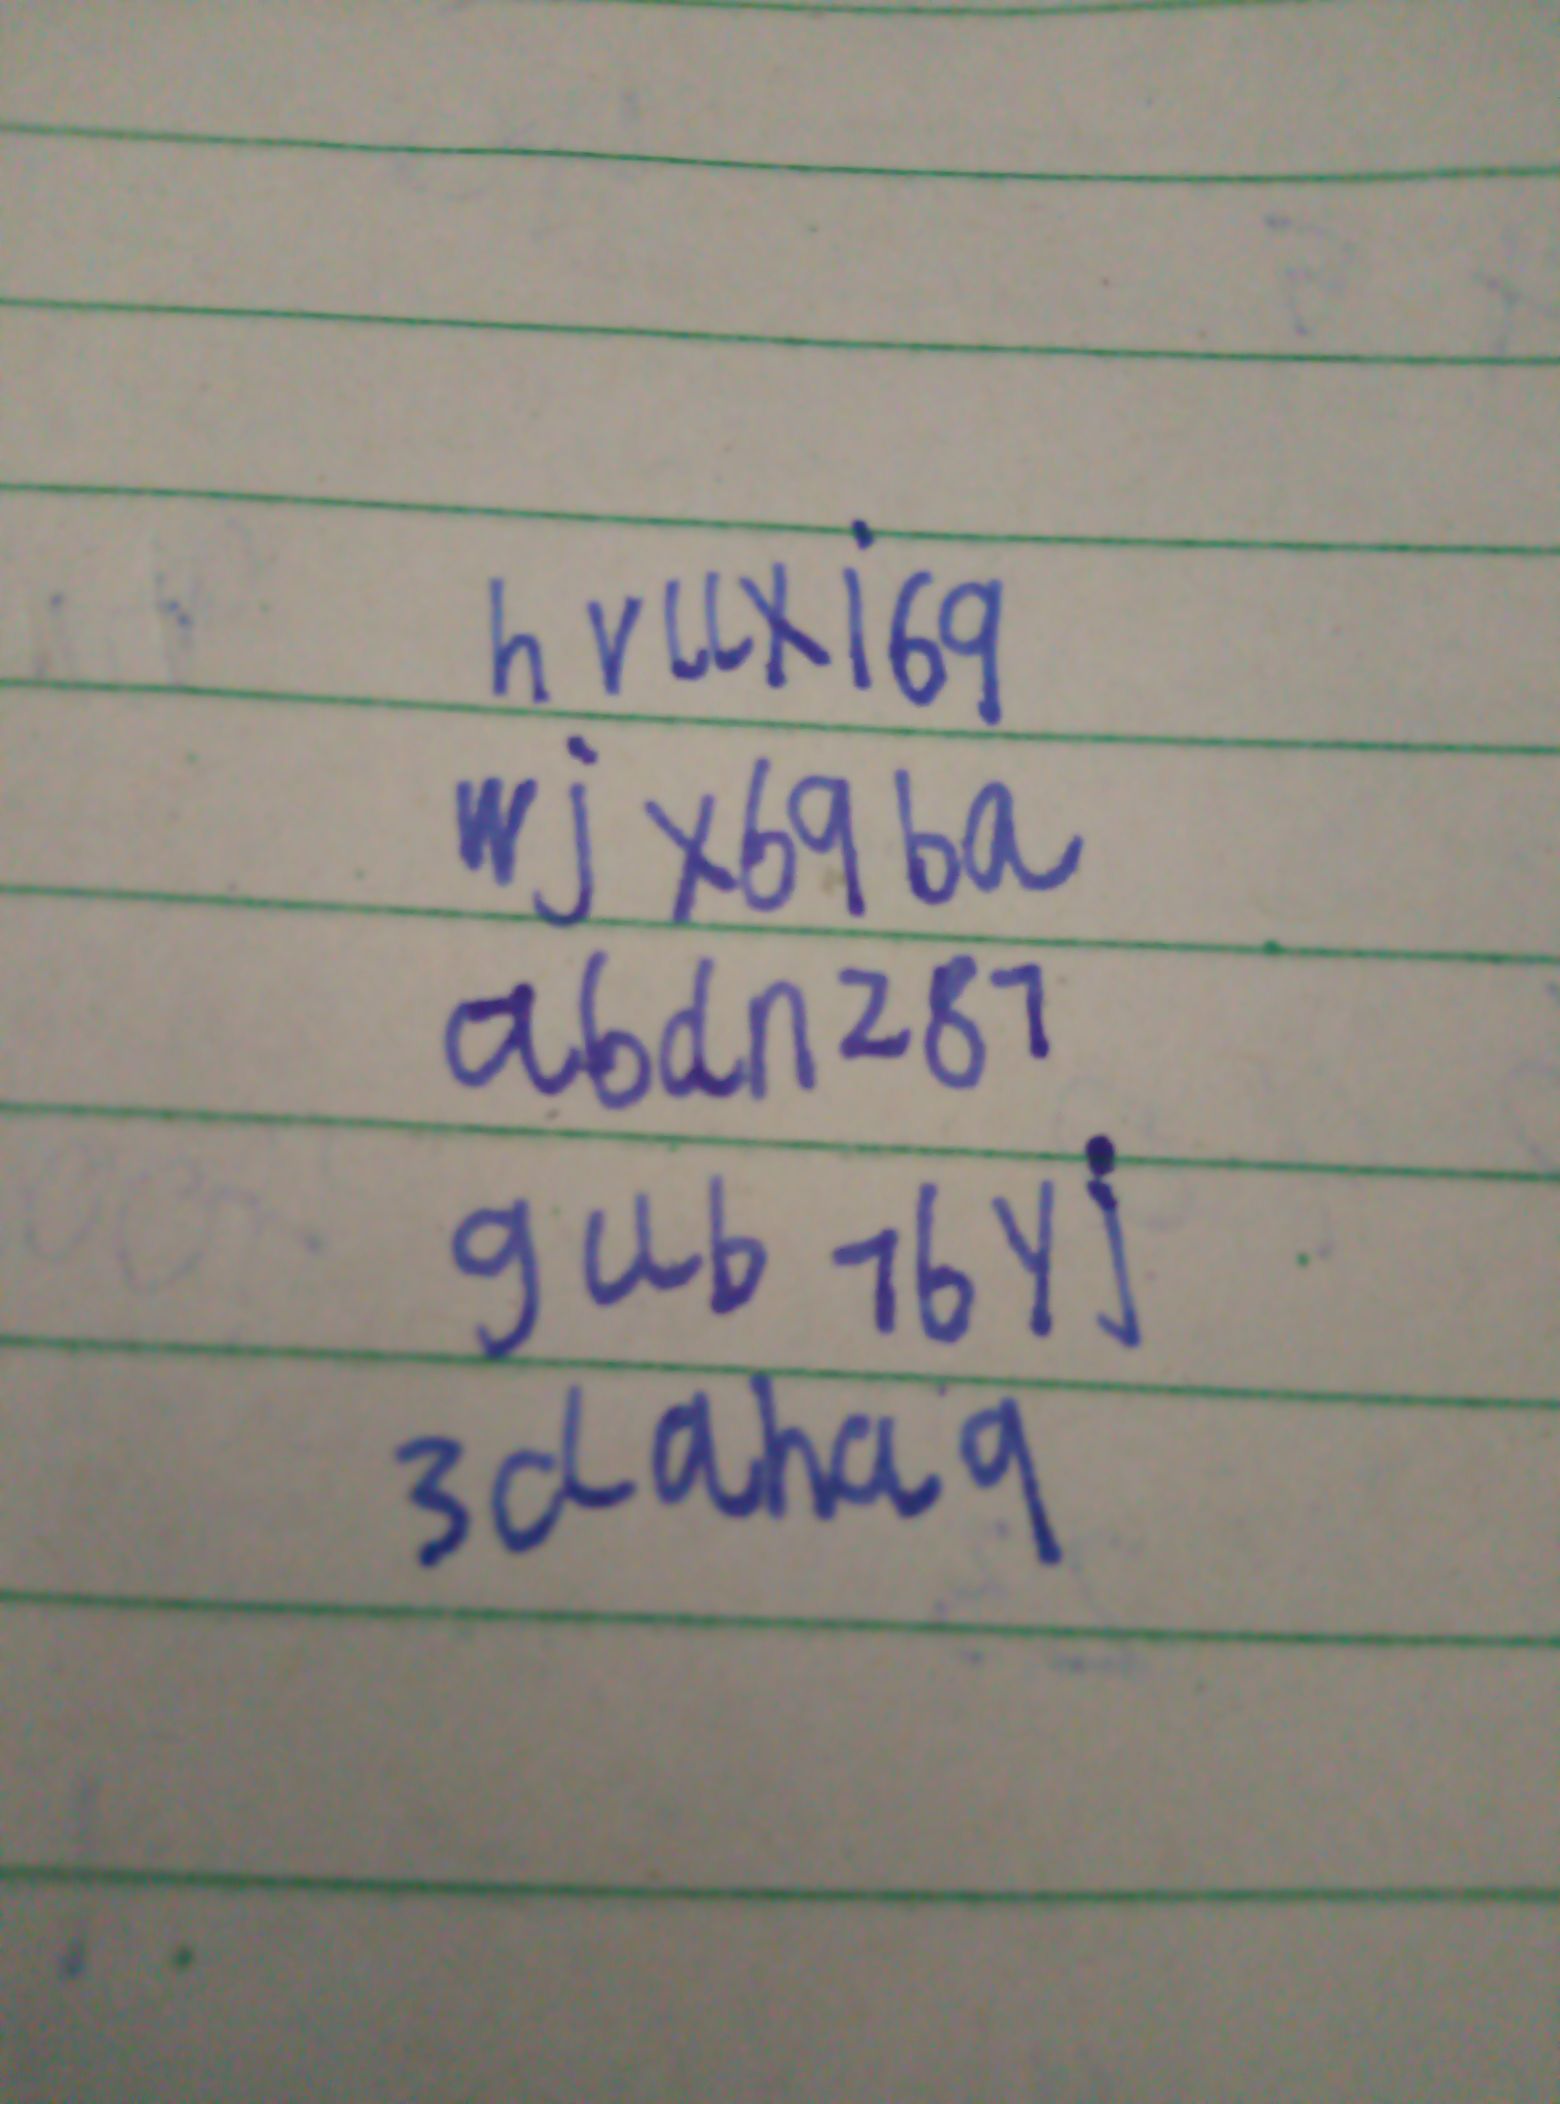 hvuxi69
wjx69ba
abdn287
gub76yj
3dahaq